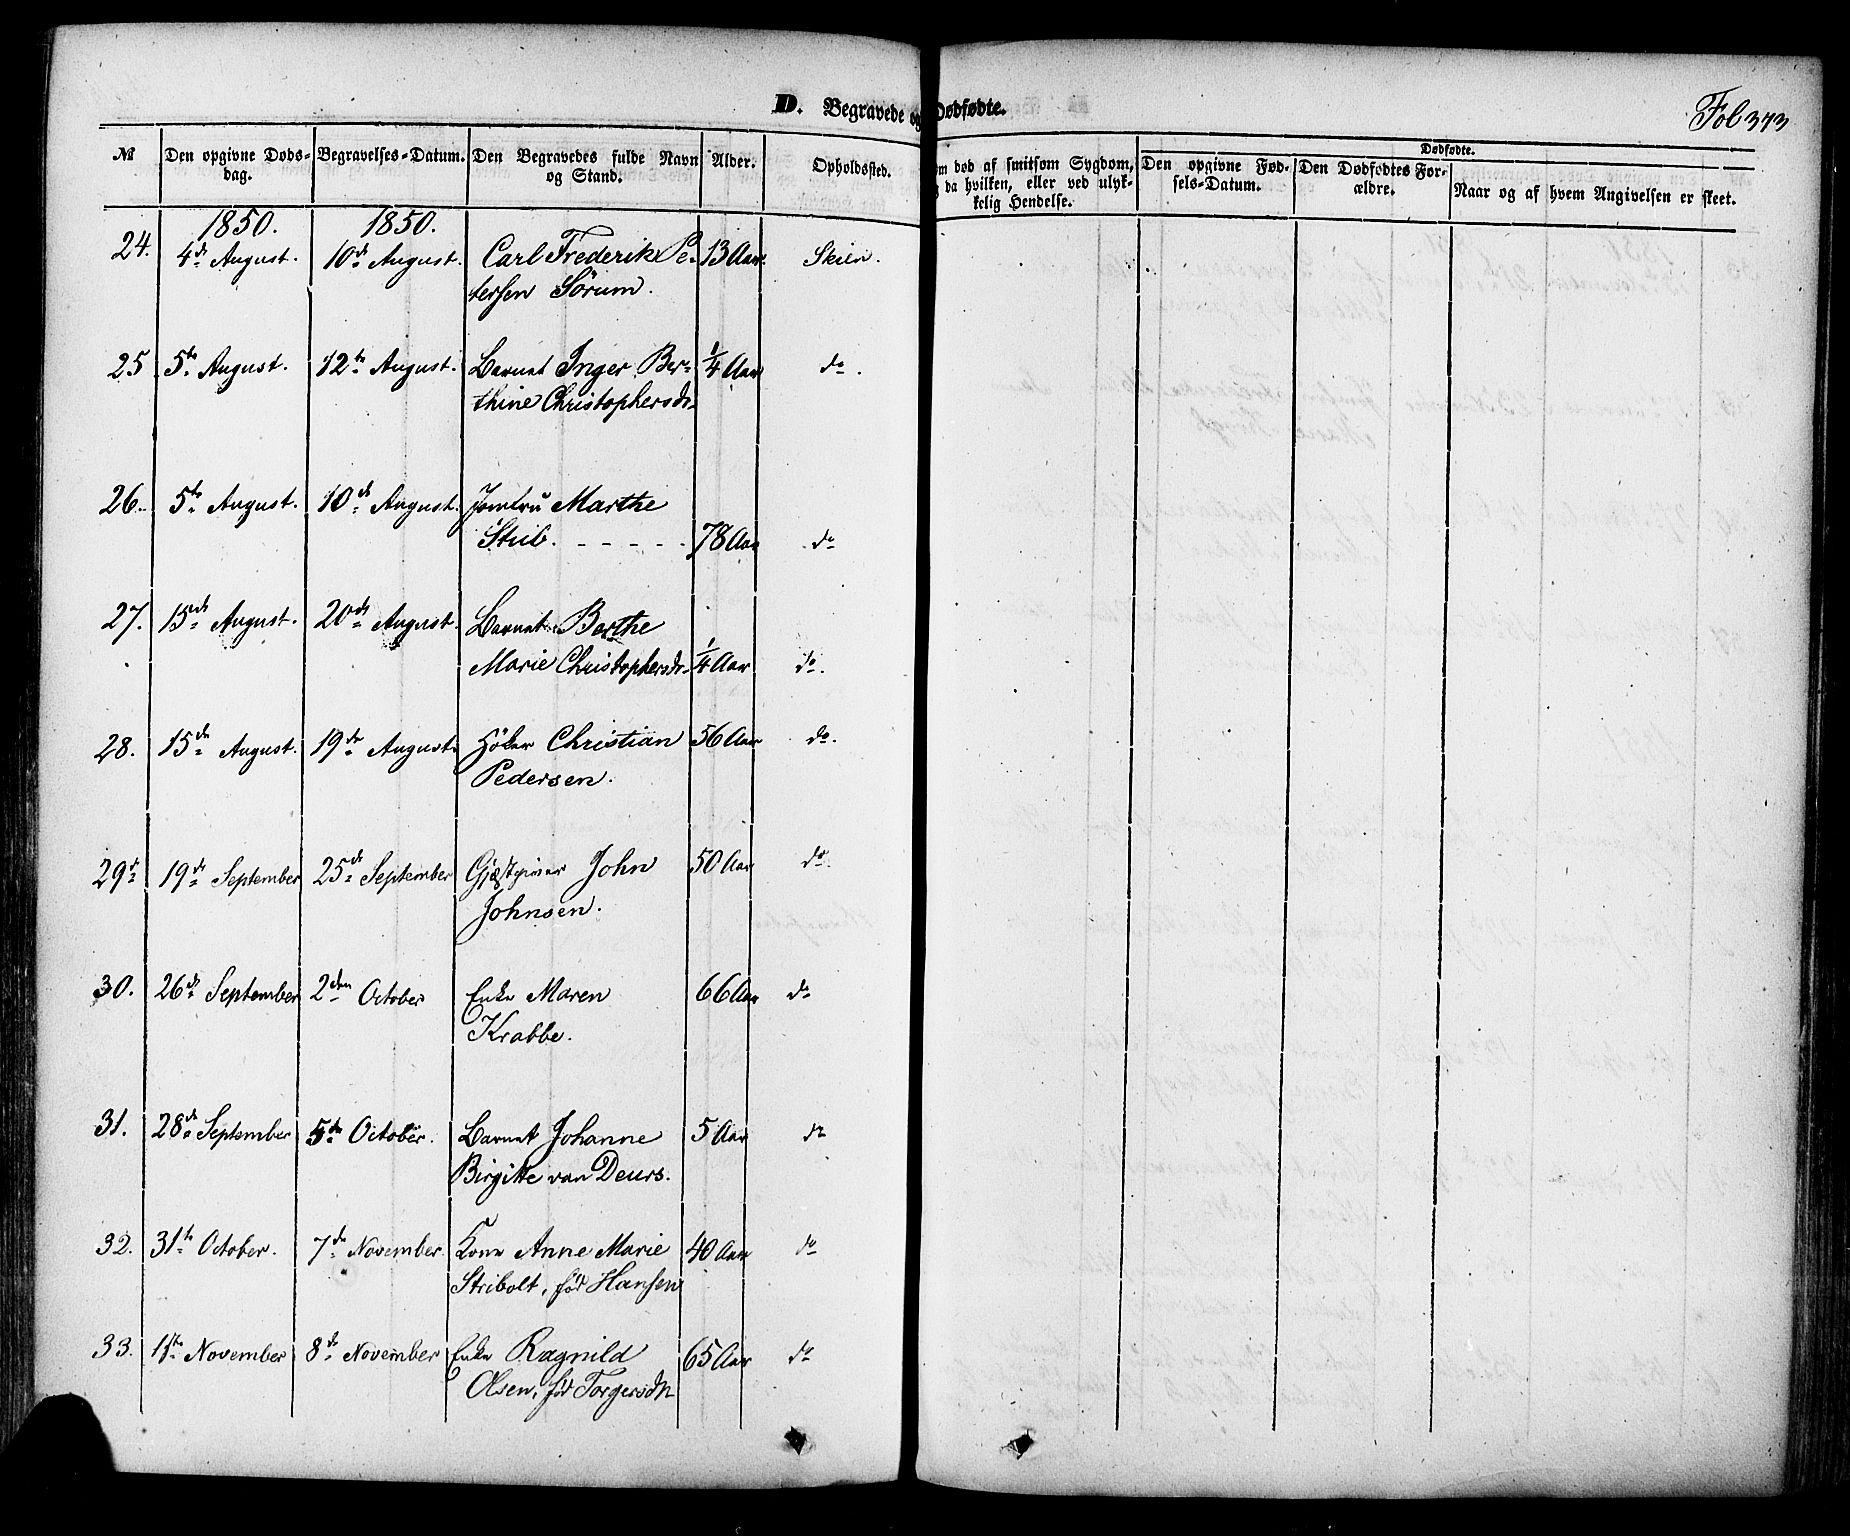 D. Begravede og Dødfødte.
Fol 373
№
Den opgivne Døds-
dag.
Begravelses-Datum.
Den Begravedes fulde Navn
og Stand.
Alder.
Opholdssted.
om død af smitsom Sygdom,
da hvilken, eller ved ulyk-
kelig Hendelse.
Dødfødte.
Den opgivne Fød-
sels-Datum.
Den Dødfødtes For-
ældre.
Naar og af hvem Angivelsen er skeet.
1850. 1850.
24. 4de August. 10de August. Carl Frederik Pe- 13 Aar. Skien.
tersen Sörum.
25 5te August. 12te August. Barnet Inger Ber- 1/4 Aar do.
thine Christophersdr.
26. 5te August. 10de August. Jomfru Marthe
Stub. - - - - - 78 Aar do
27. 15de August. 20de August. Barnet Berthe
Marie Christophersdr. 1/4 Aar do.
28. 15de August. 19de August. Höker Christian 56 Aar do.
Pedersen.
29. 19de September 25de September Gjæstgiver John 50 Aar do.
Johnsen.
30. 26de September 2den October Enke Maren 66 Aar do
Krabbe.
31. 28de September 5te October. Barnet Johanne 5 Aar do
Birgitte van Deurs.
32. 31te October. 7de November. Kone Anne Marie 40 Aar do
Stribolt, föd Hansen
33. 1te November 8de November Enke Ragnild 65 Aar do
Olsen, föd Torgersdtr